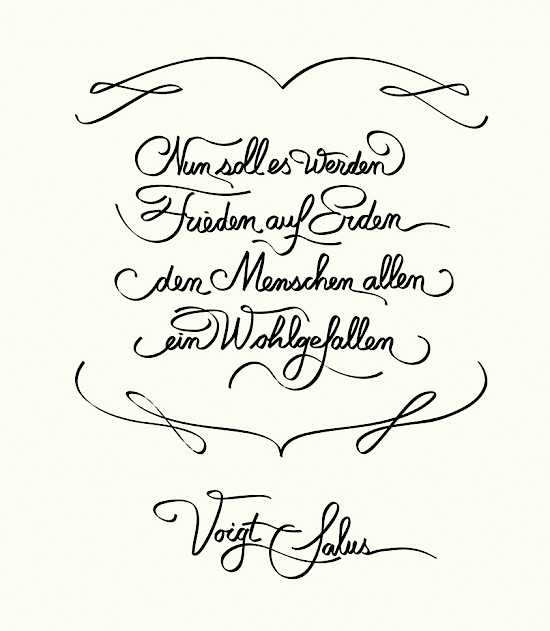 Nun soll es Werden
Frieden auf Erden
den Menschen allen
ein Wohlgefallen
Voigt Salus